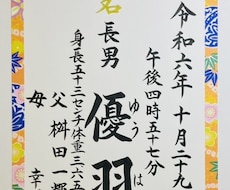 令和六年 十月二十九
午後四時五十七分
名
長男 優羽
ゆう は
身長五十三センチ体重三六五
父 桝田一輝
母 幸